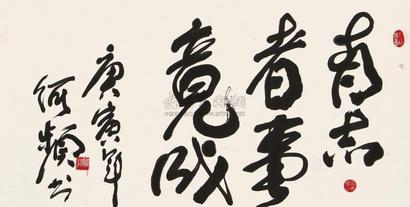 有志
者事
竟成
庚寅年
何频书